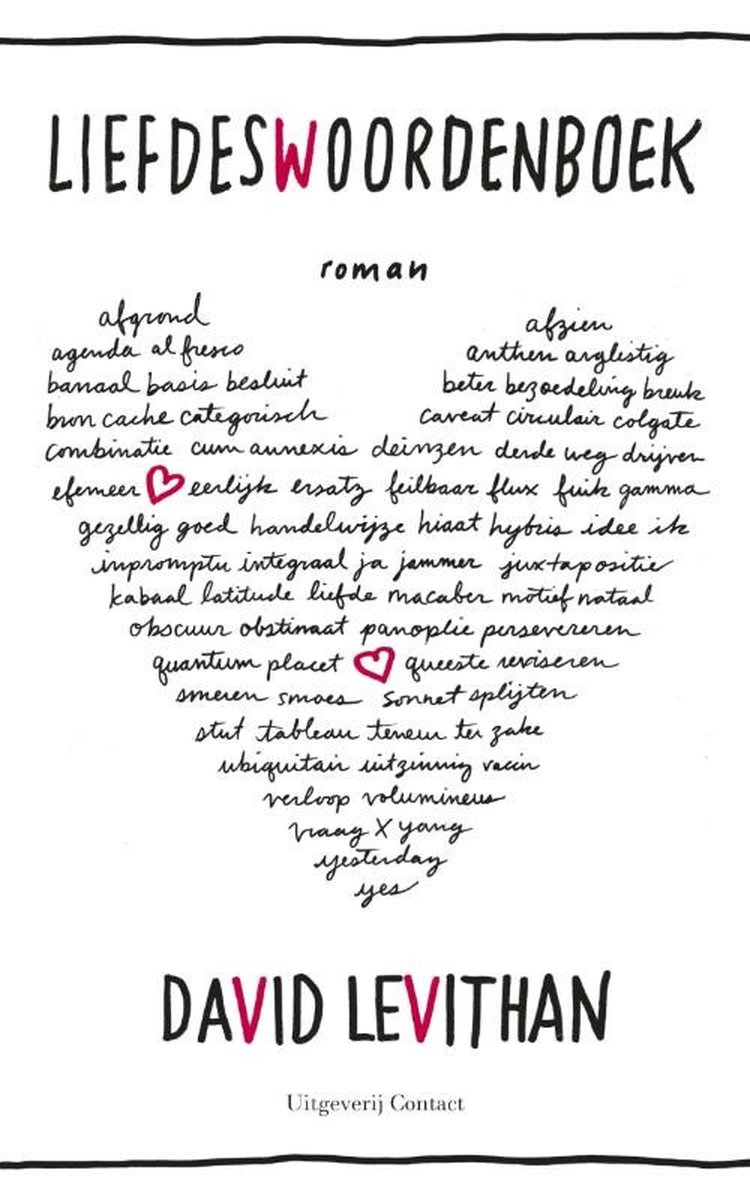 LIEFDESWOORDENBOEK
roman
afgrond afzien
agenda al fresco anthem arglistig
banaal basis besluit beter bezoedeling breuk
bron cache categorisch caveat circulair colgate
combinatie cum annexis deinzen derde weg drijven
efemeer eerlijk ersatz feilbaar flux fuik gamma
gezellig goed handelwijze hiaat hybris idee ik
inpromptu integraal ja jammer juxtapositie
kabaal latitude liefde macaber motief nataal
obscuur obstinaat panoplie persevereren
quantum placet queeste reviseren
smeren smoes sonnet splijten
stut tableau teneur ter zake
ubiquitair uitzinnig vacin
verloop volumineus
vraag X yang
yesterday
yes
DAVID LEVITHAN
Uitgeverij Contact